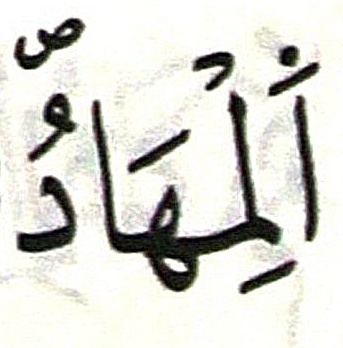 اَ۬لْمِهَادُۖ